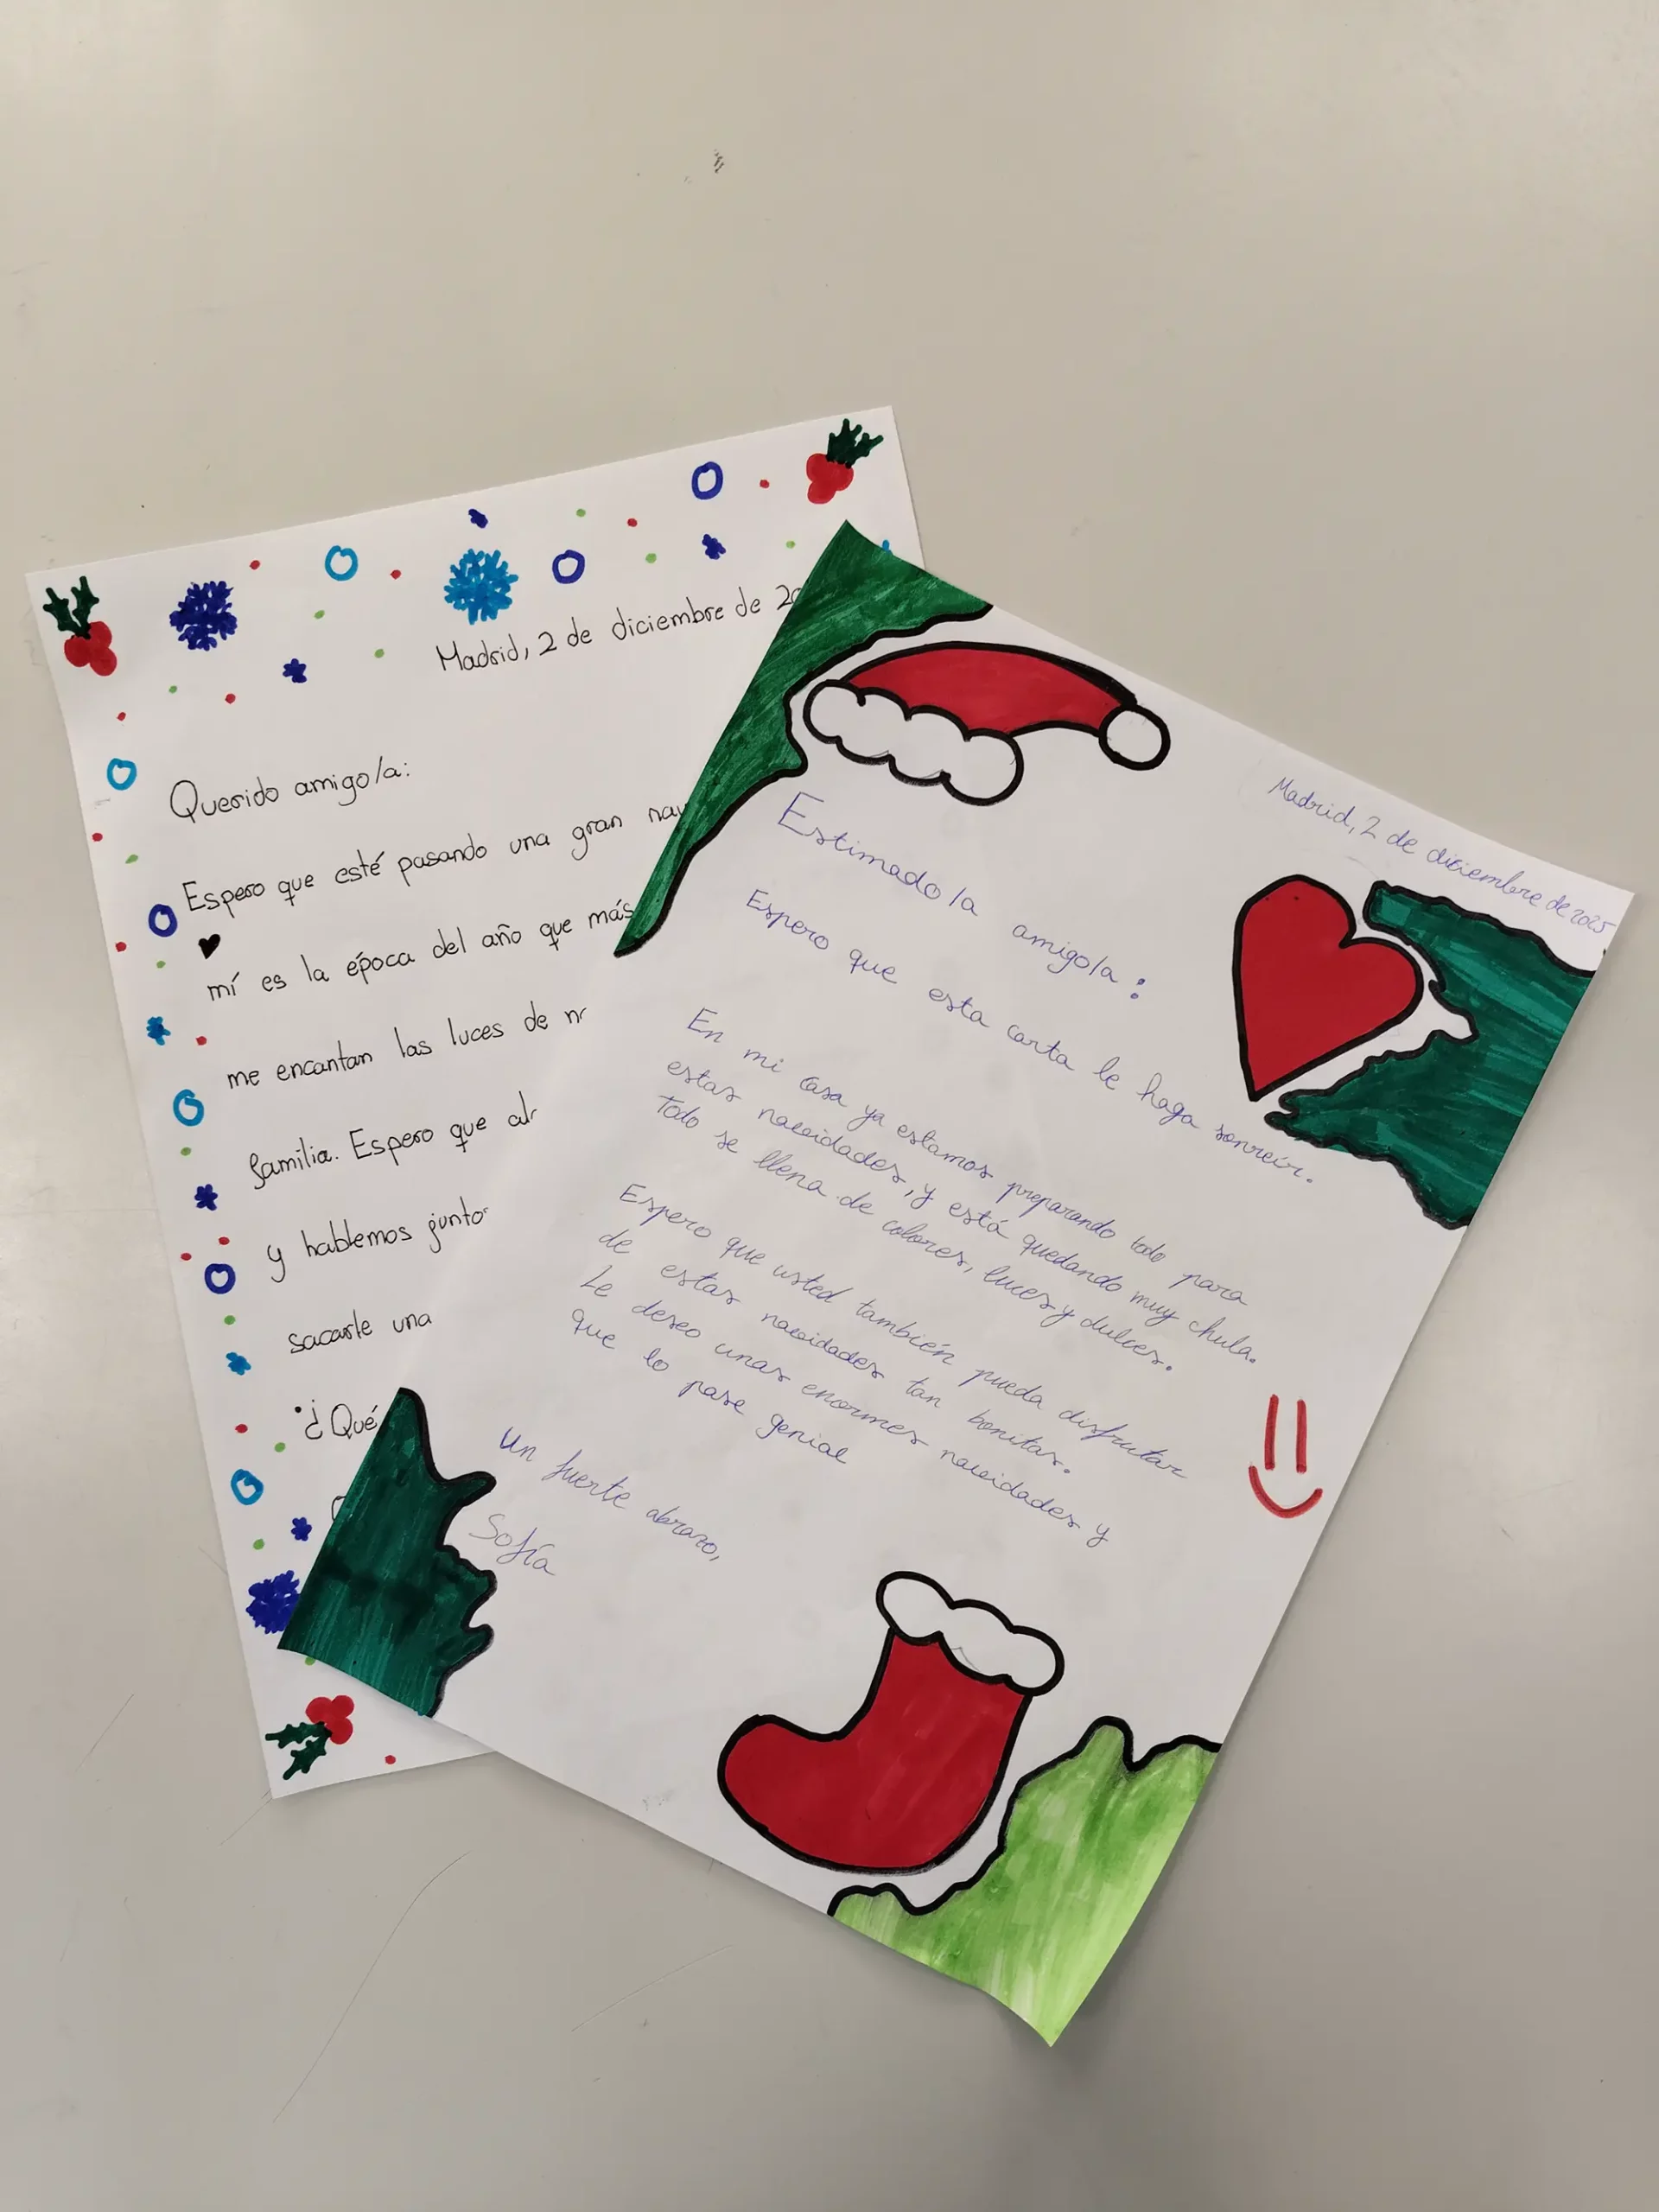 Madrid, 2 de diciembre de
Querido amigo/a:
Espero que esté pasando una gran
mí es la época del año que más
me encantan las luces de
familia. Espero que
y hablemos
sacarle una
¿Qué
Madrid, 2 de diciembre de 2025
Estimado/a amigo/a:
Espero que esta carta le haga sonreír.
En mi casa ya estamos preparando todo para
estas navidades, y está quedando muy chula.
Todo se llena de colores, luces y dulces.
Espero que usted también pueda disfrutar
de estas navidades tan bonitas.
Le deseo unas enormes navidades y
que lo pase genial
Un fuerte abrazo,
Sofía